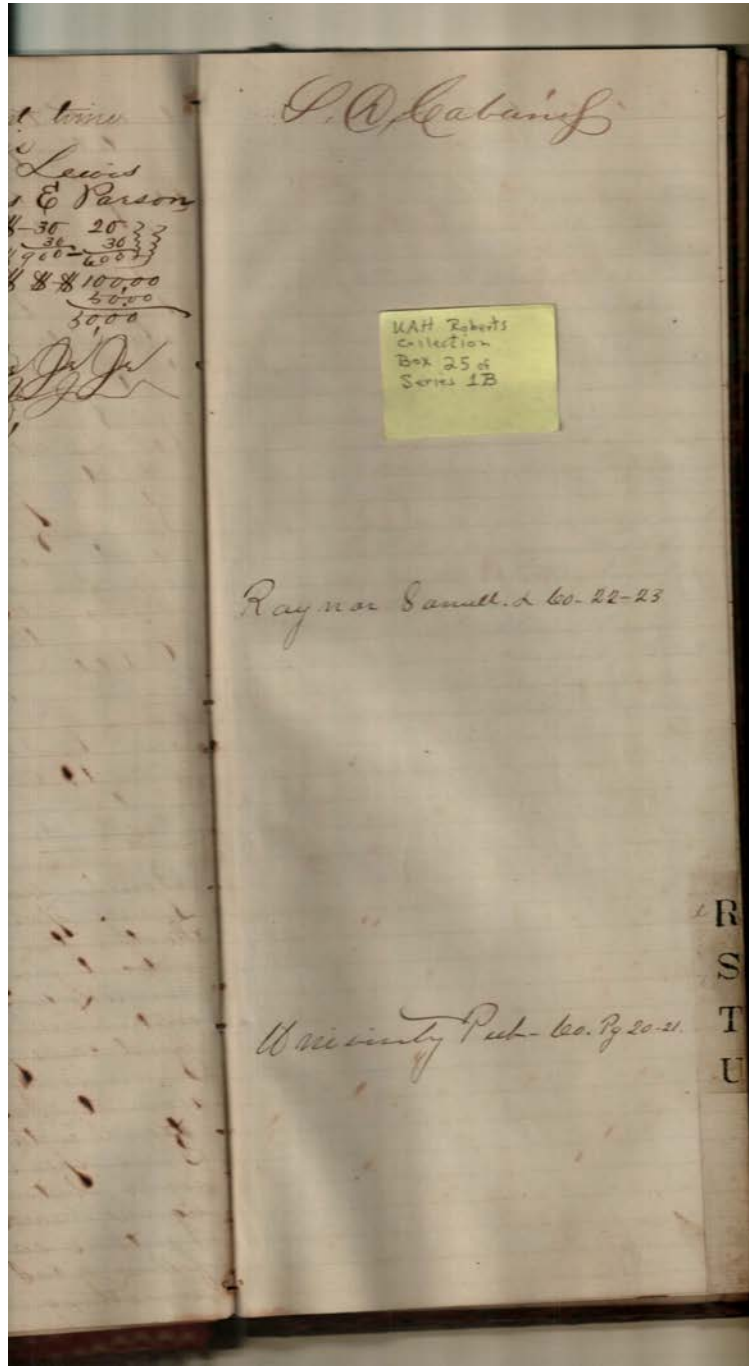 t time
Lewis
E Parson
$-30 20
30 30
900 - 600
$ $ $100,00
50,00
50,00
Jr Jr
S. D. Cabaniss
UAH Roberts
Collection
Box 25 of
Series 1B
Raynor Samuel. & Co- 22-23
University Pub- Co. Pg 20-21.
R
S
T
U